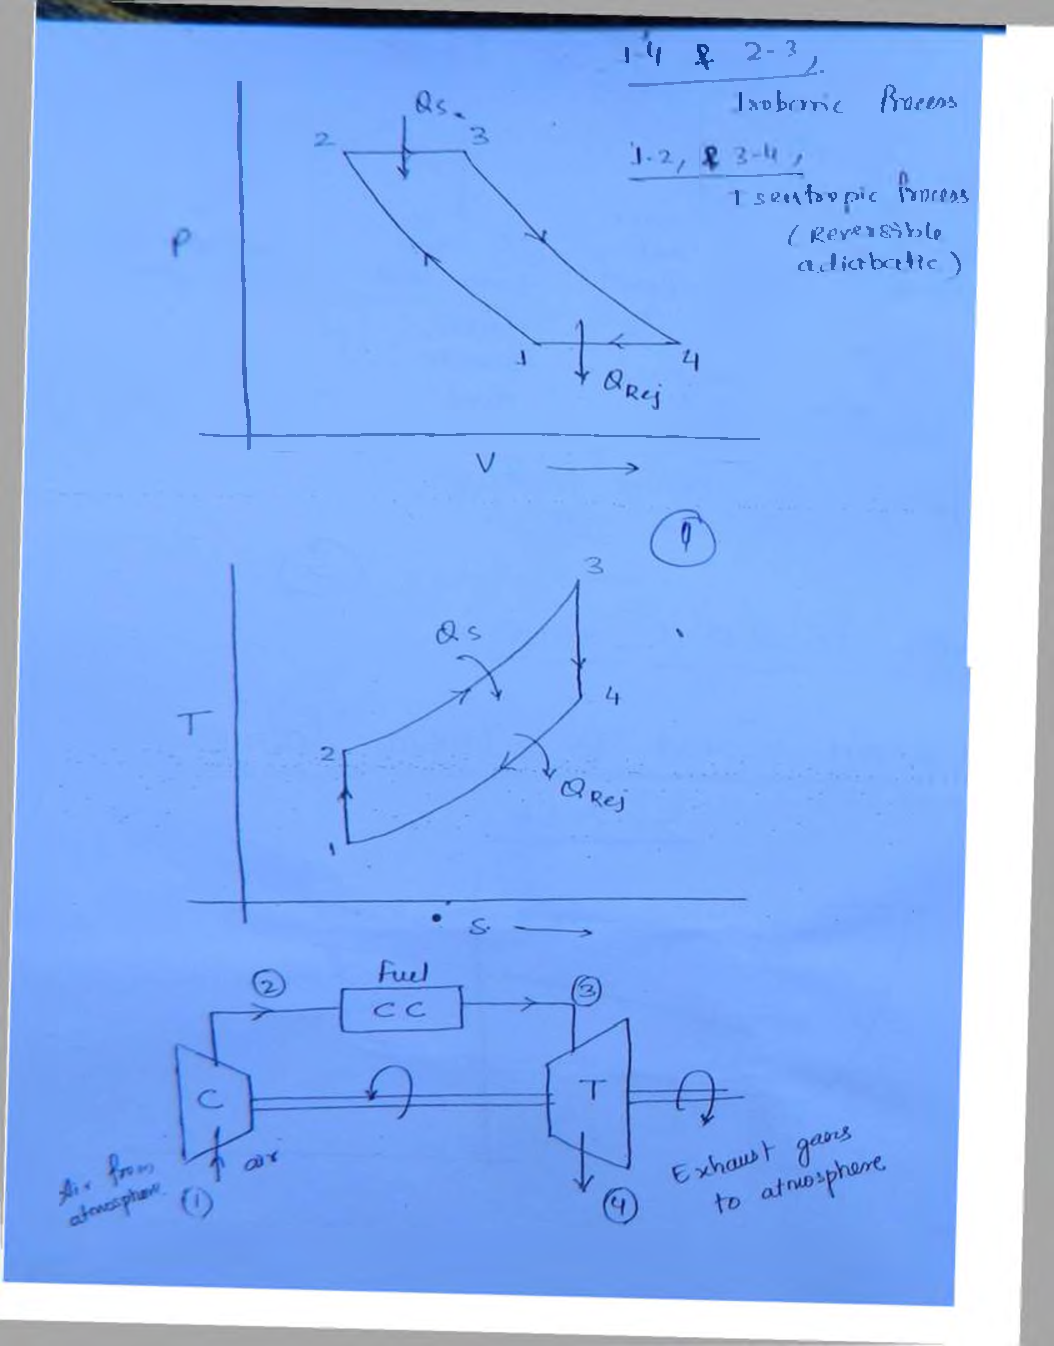 1-4 & 2-3,
Isobaric Process
1-2, & 3-4,
Isentropic Process
(Reversible
adiabatic)
Qs.
2 3
P
1 4
QRej
V
1
3
Qs
4
T
2
QRej
1
S.
2 Fuel 3
CC
C T
air
Air from
atmosphere
1
4
Exhaust gases
to atmosphere